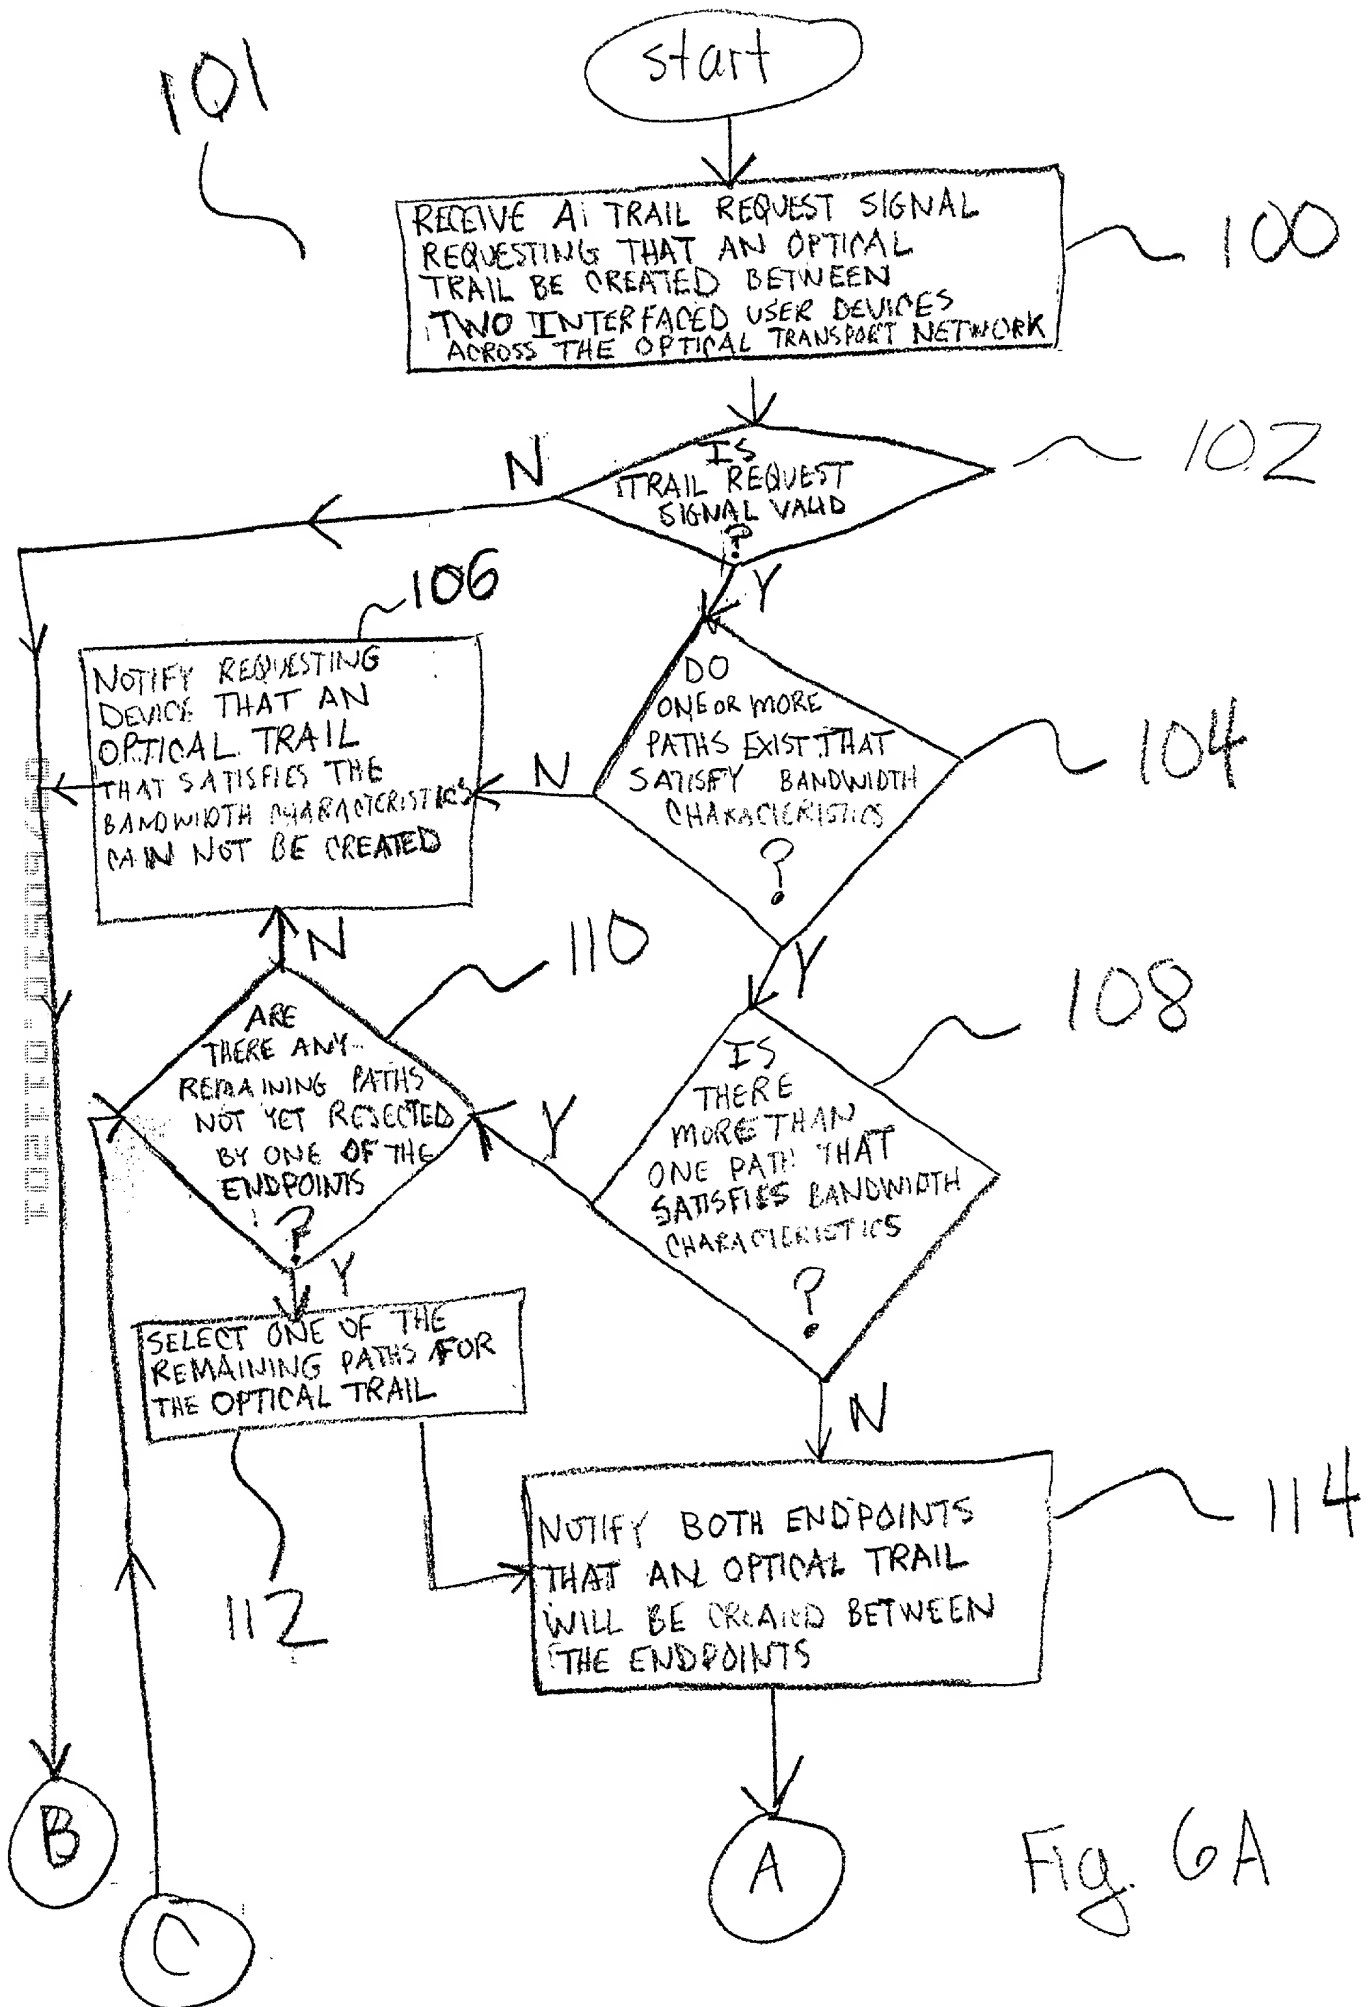 start
101
RECEIVE A TRAIL REQUEST SIGNAL
REQUESTING THAT AN OPTICAL
TRAIL BE CREATED BETWEEN
TWO INTERFACED USER DEVICES
ACROSS THE OPTICAL TRANSPORT NETWORK
100
IS
TRAIL REQUEST
SIGNAL VALID
?
102
N
Y
106
NOTIFY REQUESTING
DEVICE THAT AN
OPTICAL TRAIL
THAT SATISFIES THE
BANDWIDTH CHARACTERISTICS
CAN NOT BE CREATED
DO
ONE OR MORE
PATHS EXIST THAT
SATISFY BANDWIDTH
CHARACTERISTICS
?
104
N
Y
N
110
ARE
THERE ANY
REMAINING PATHS
NOT YET REJECTED
BY ONE OF THE
ENDPOINTS
?
Y
IS
THERE
MORE THAN
ONE PATH THAT
SATISFIES BANDWIDTH
CHARACTERISTICS
?
108
Y
N
SELECT ONE OF THE
REMAINING PATHS FOR
THE OPTICAL TRAIL
112
NOTIFY BOTH ENDPOINTS
THAT AN OPTICAL TRAIL
WILL BE CREATED BETWEEN
THE ENDPOINTS
114
B
C
A
Fig. 6A